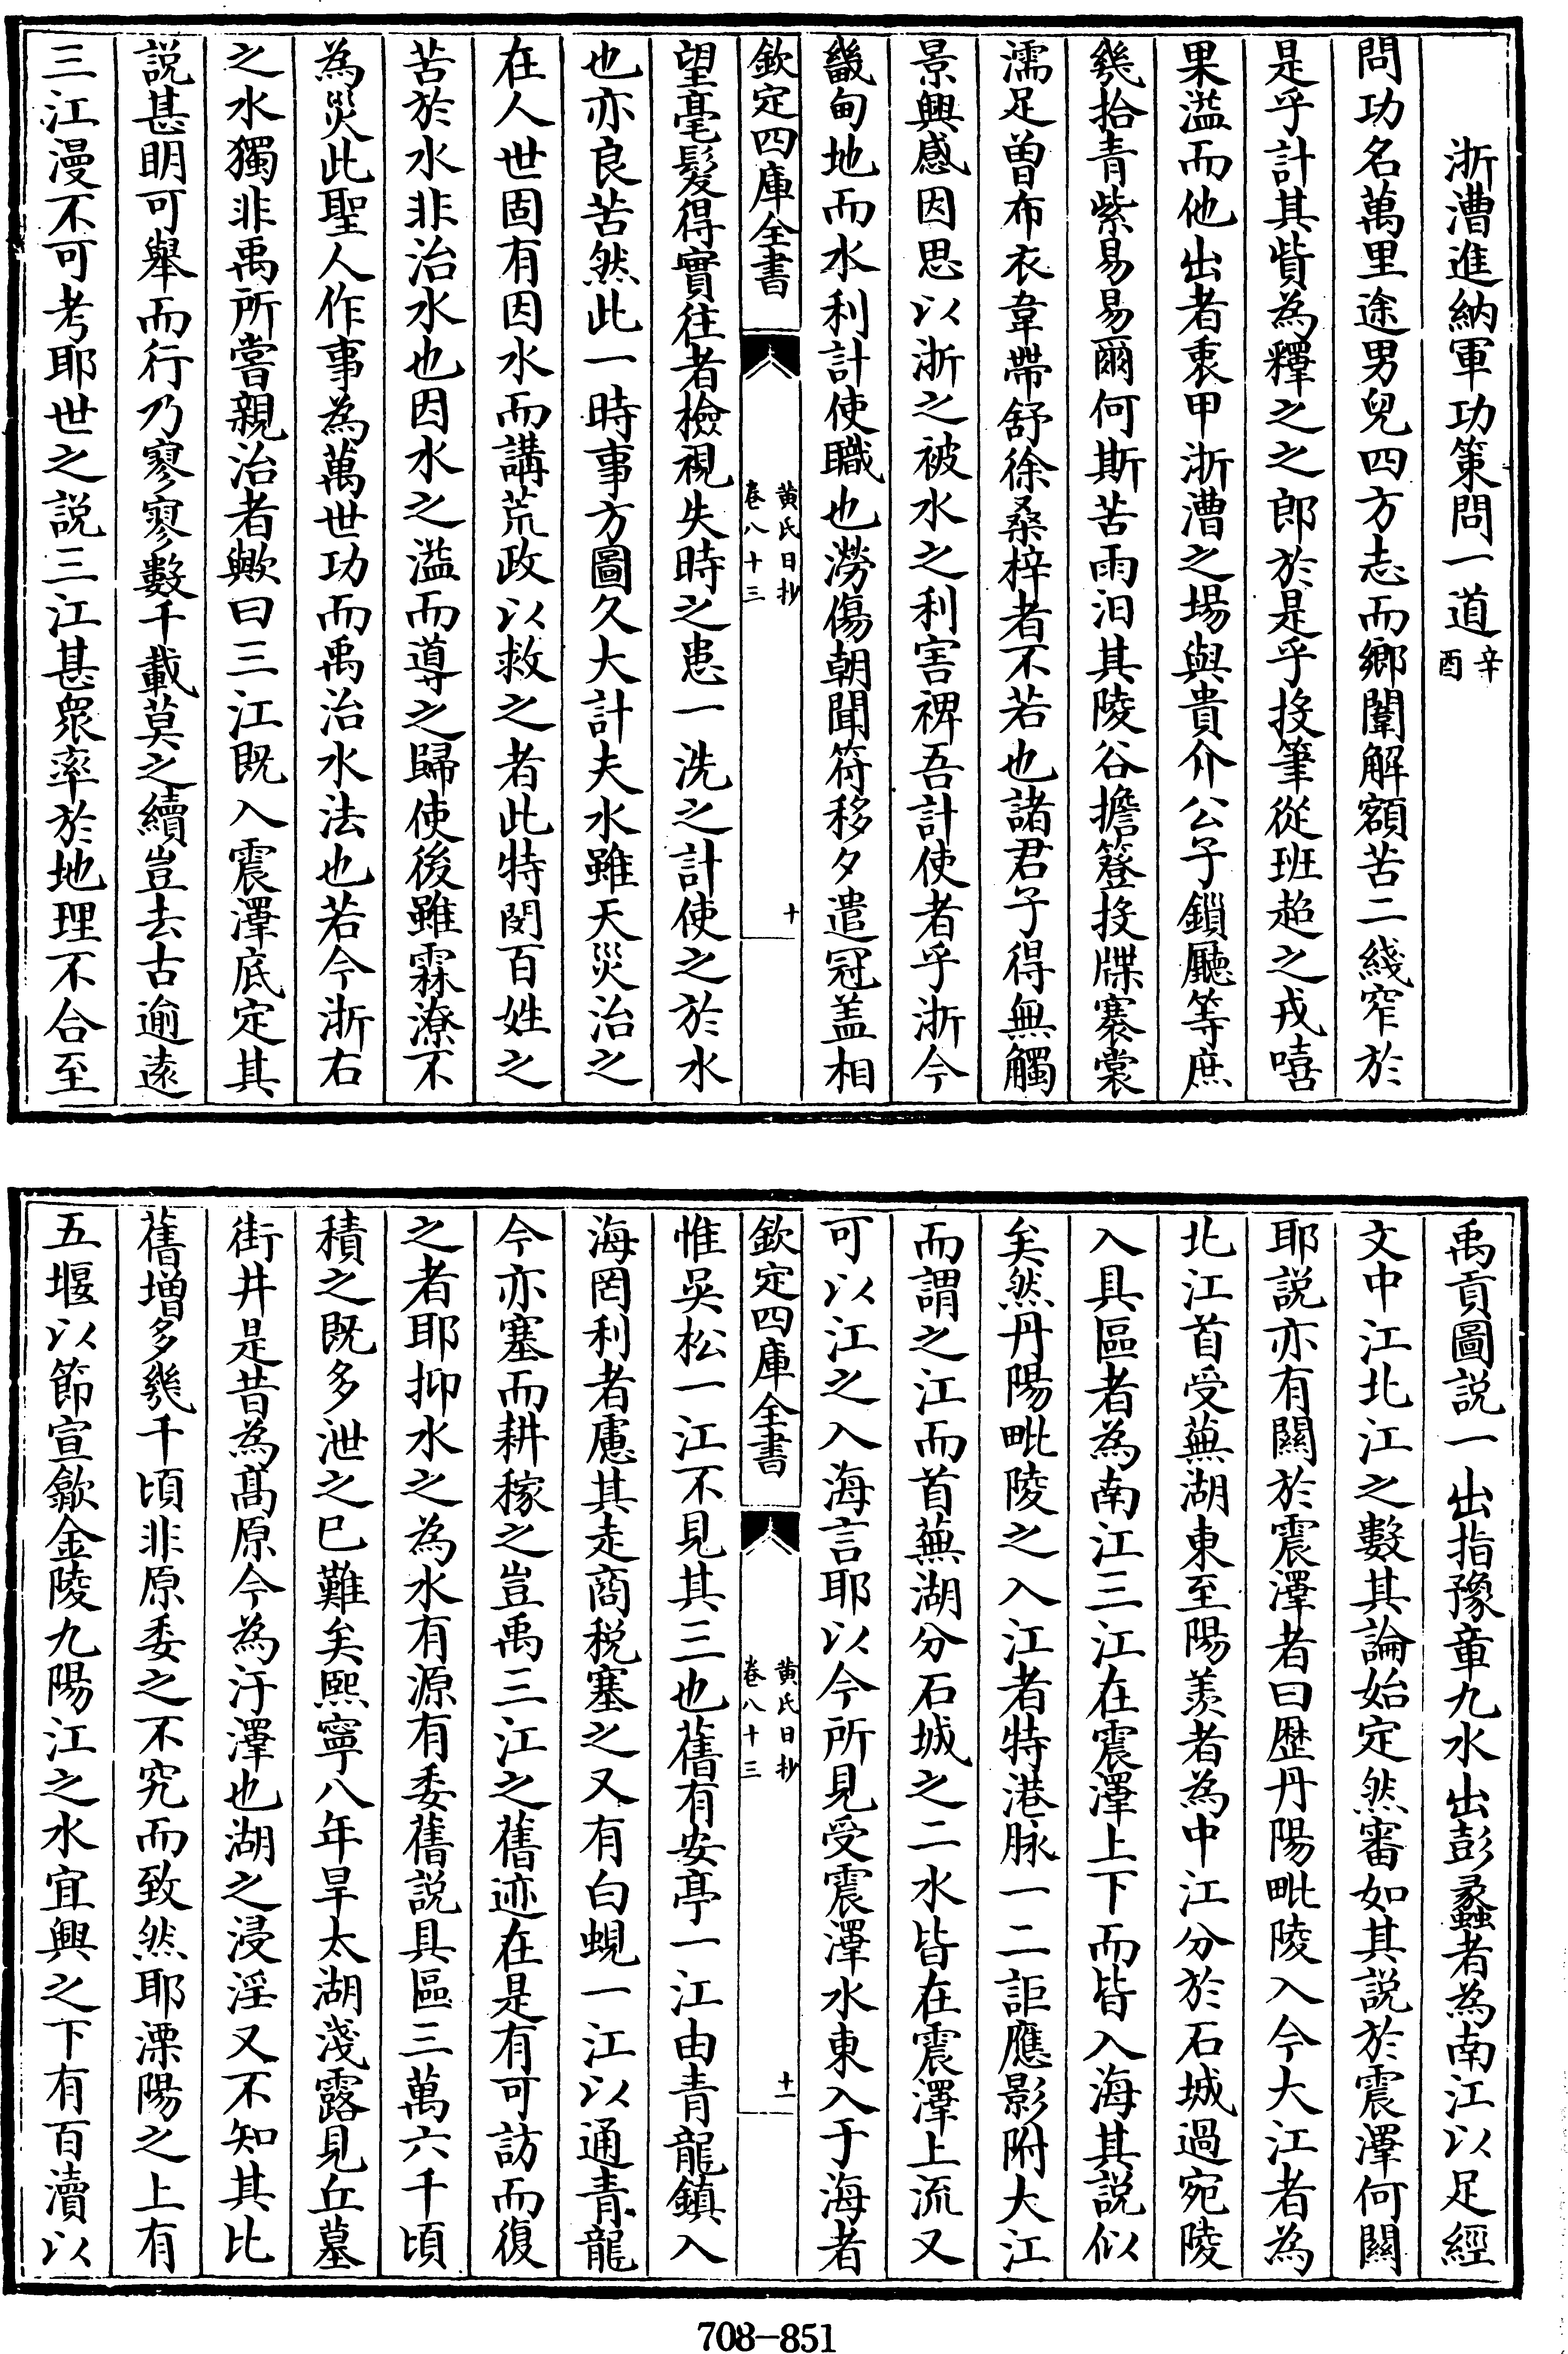 浙漕進納軍功策問一道辛酉
問功名萬里途男兒四方志而鄉闈解額苦二綫窄於
是乎計其貲為釋之之郎於是乎投筆從班超之戎嘻
果溢而他出者衷甲浙漕之場與貴介公子鎖廳等庶
幾拾青紫易易爾何斯苦雨汩其陵谷擔簦投牒褰裳
濡足曾布衣韋帶舒徐桑梓者不若也諸君子得無觸
景興感因思以浙之被水之利害禆吾計使者乎浙今
畿甸地而水利計使職也澇傷朝聞符移夕遣冠盖相
欽定四庫全書
黄氏日抄
卷八十三
十
望毫髮得實往者檢視失時之患一洗之計使之於水
也亦良苦然此一時事方圖久大計夫水雖天災治之
在人世固有因水而講荒政以救之者此特閔百姓之
苦於水非治水也因水之溢而導之歸使後雖霖潦不
為災此聖人作事為萬世功而禹治水法也若今浙右
之水獨非禹所嘗親治者歟曰三江既入震澤底定其
説甚明可舉而行乃寥寥數千載莫之續豈去古逾遠
三江漫不可考耶世之説三江甚衆率於地理不合至
禹貢圖説一出指豫章九水出彭蠡者為南江以足經
文中江北江之數其論始定然審如其説於震澤何關
耶説亦有關於震澤者曰歴丹陽毗陵入今大江者為
北江首受蕪湖東至陽羡者為中江分於石城過宛陵
入具區者為南江三江在震澤上下而皆入海其説似
矣然丹陽毗陵之入江者特港脉一二詎應影附大江
而謂之江而首蕪湖分石城之二水皆在震澤上流又
可以江之入海言耶以今所見受震澤水東入于海者
欽定四庫全書
黄氏日抄
卷八十三
十一
惟吳松一江不見其三也舊有安亭一江由青龍鎮入
海罔利者慮其走商税塞之又有白蜆一江以通青龍
今亦塞而耕稼之豈禹三江之舊迹在是有可訪而復
之者耶抑水之為水有源有委舊説具區三萬六千頃
積之既多泄之已難矣熙寧八年旱太湖淺露見丘墓
街井是昔為髙原今為汙澤也湖之浸淫又不知其比
舊增多幾千頃非原委之不究而致然耶溧陽之上有
五堰以節宣歙金陵九陽江之水宜興之下有百瀆以
708-851